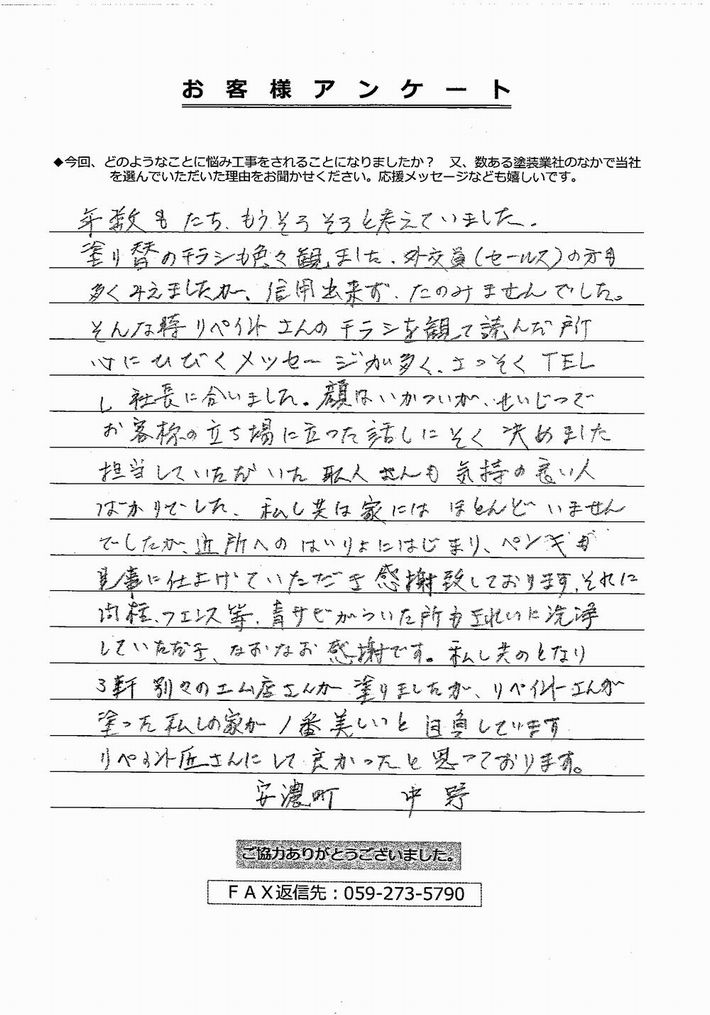 お客様アンケート
◆今回、どのようなことに悩み工事をされることになりましたか？　又、数ある塗装業社のなかで当社
を選んでいただいた理由をお聞かせください。応援メッセージなども嬉しいです。
年数もたち、もうそろそろと考えていました。
塗り替のチラシも色々観ました、外交員（セールス）の方も
多くみえましたが、信用出来ず、たのみませんでした。
そんな時リペイントさんのチラシを観て読んだ所
心にひびくメッセージが多く、さっそくTEL
し 社長に合いました。顔はいかついが、せいじつで
お客様の立ち場に立った話しにそく 決めました
担当していただいた 職人さんも 気持の良い人
ばかりでした、私し共は家には ほとんど いません
でしたが、近所へのはいりょにはじまり、ペンキも
見事に仕上げていただき 感謝致しております、それに
門柱、フェンス等、青サビがついた所もきれいに洗浄
していただき、なおなお 感謝です。私し共のとなり
3軒 別々の工ム店さんが 塗りましたが、リペイントさんが
塗った私しの家が 1番美しいと 自負しています
リペイント匠さんにして良かったと思っております。
安濃町　中野
ご協力ありがとうございました。
ＦＡＸ返信先：059-273-5790